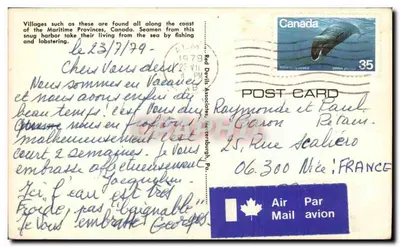 Villages such as these are found all along the coast
of the Maritime Provinces, Canada. Seamen from this
snug harbor take their living from the sea by fishing
and lobstering.
le 23/7/79
Chers Vous deux.
Nous sommes en Vacances
et nous avons enfin du
beau temps! c'est
nous en profitons
malheureusement
court 2 semaines. Je Vous
embrasse affectueusement
Jacqueline
Ici l'eau est très
froide, pas "baignable"
je Vous embrasse Georges
1979
Canada
35
POST CARD
Raymonde et Paul
25, Rue Scaliero
06.300 Nice, FRANCE
Air Par
Mail avion